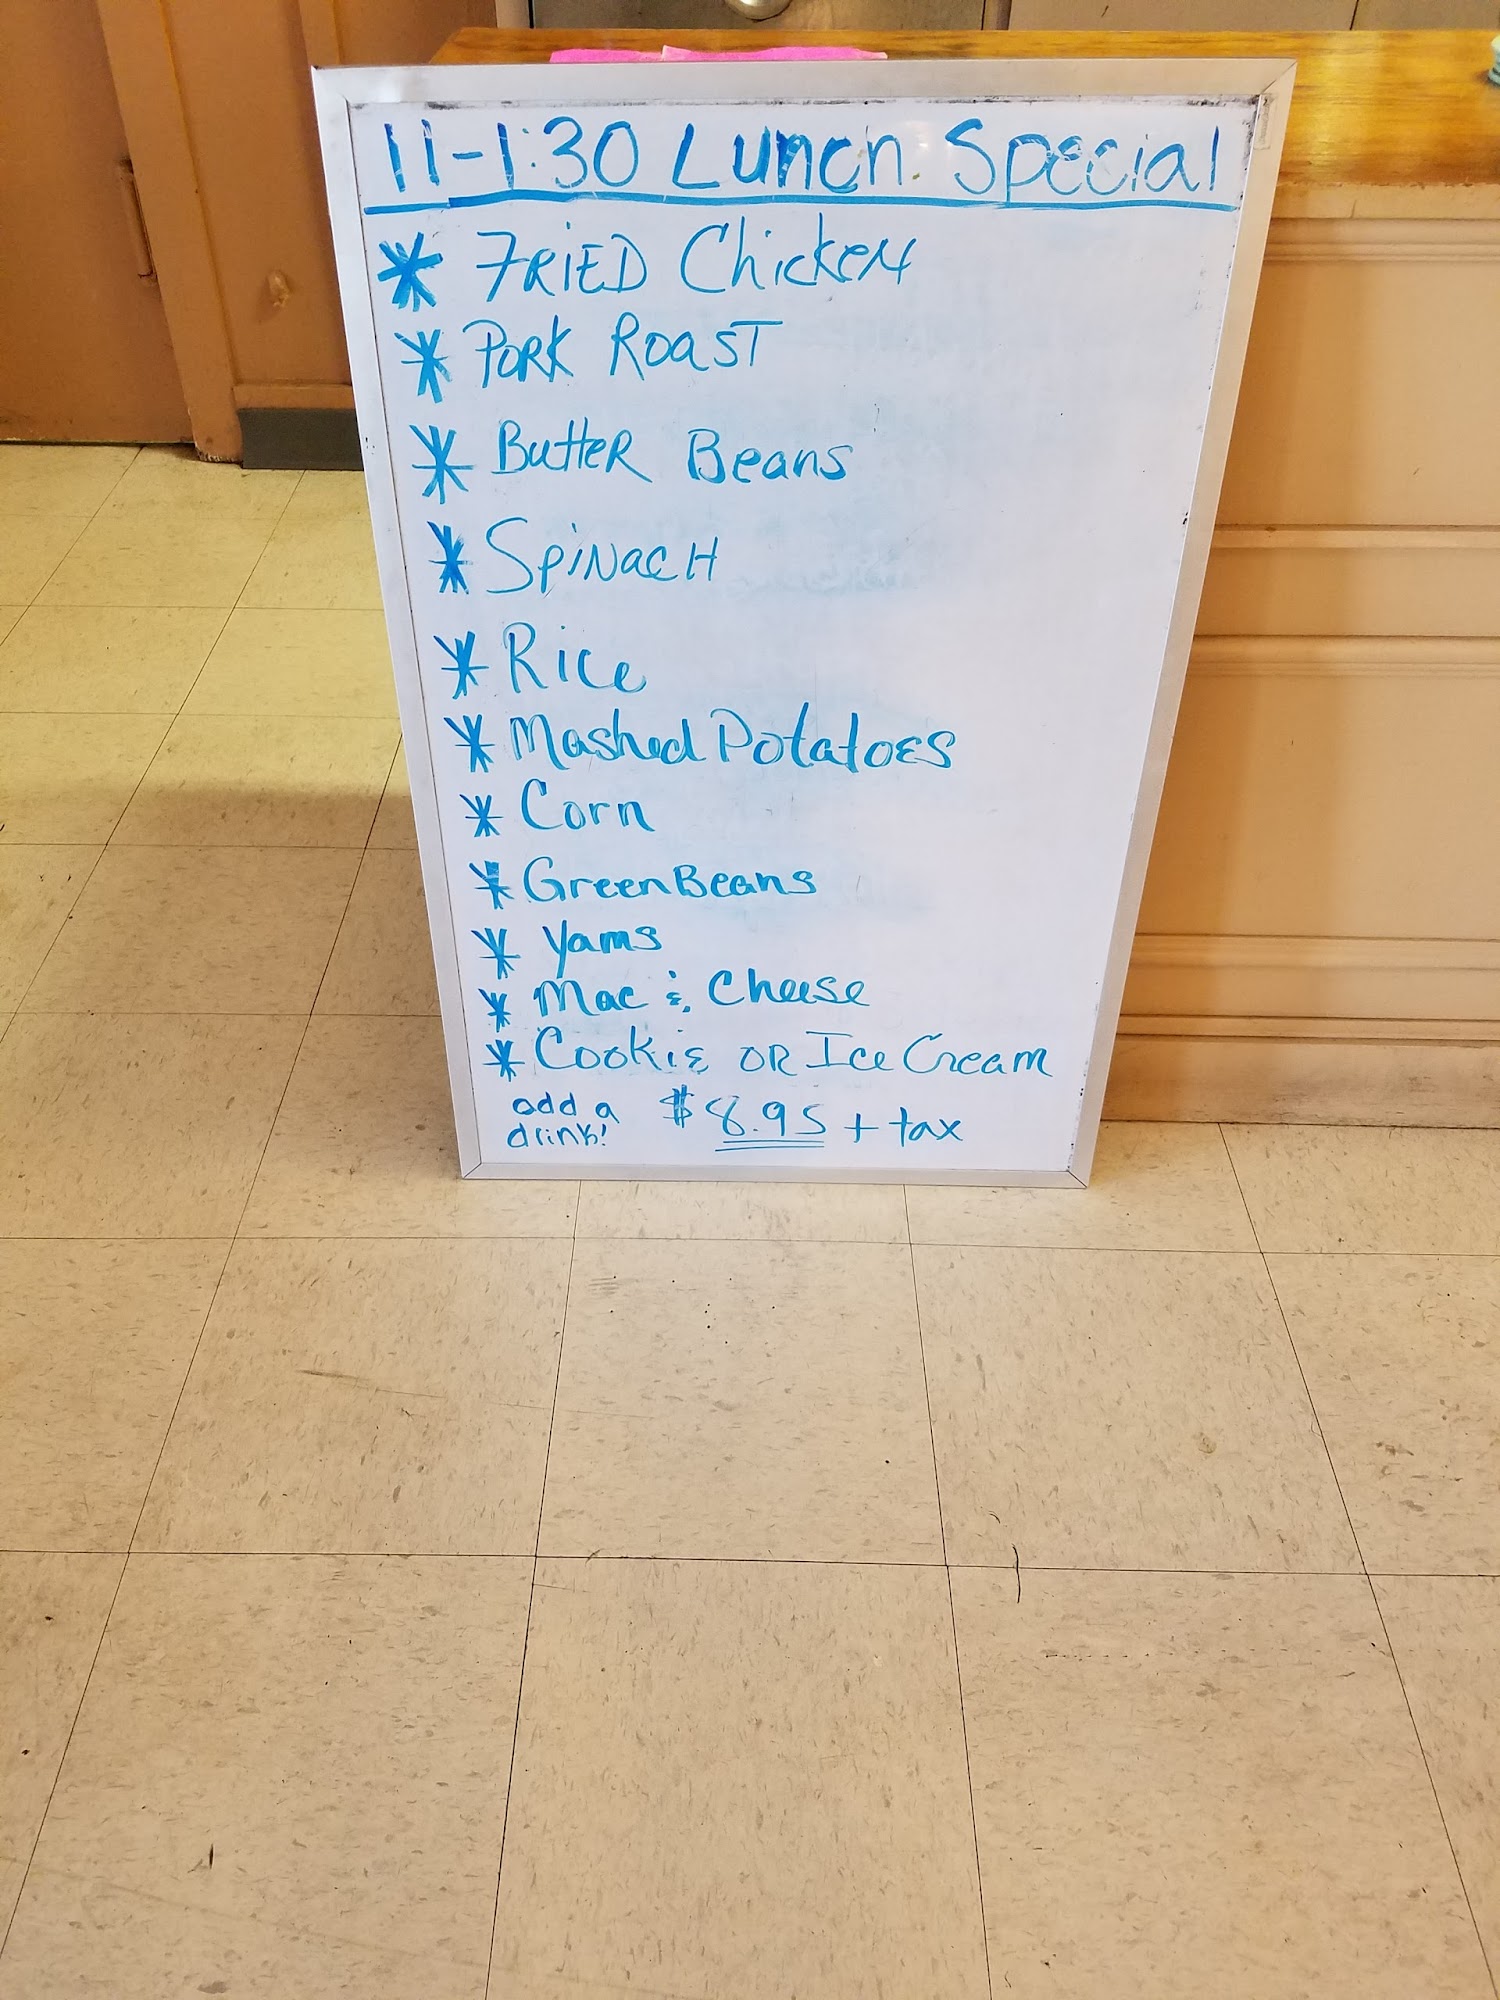 11-1:30 Lunch Special
* FRiED Chicken
* Pork Roast
* Butter Beans
* Spinach
* Rice
* Mashed Potatoes
* Corn
* Green Beans
* Yams
* Mac & Cheese
* Cookie or Ice Cream
add a drink! $8.95 + tax